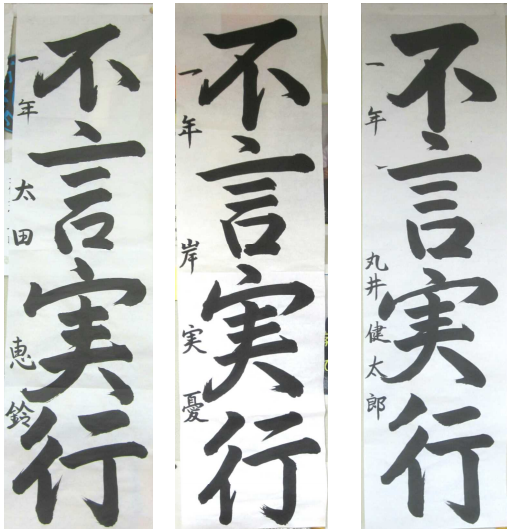 不言実行
一年 太田 恵鈴
不言実行
一年 岸 実憂
不言実行
一年 丸井健太郎